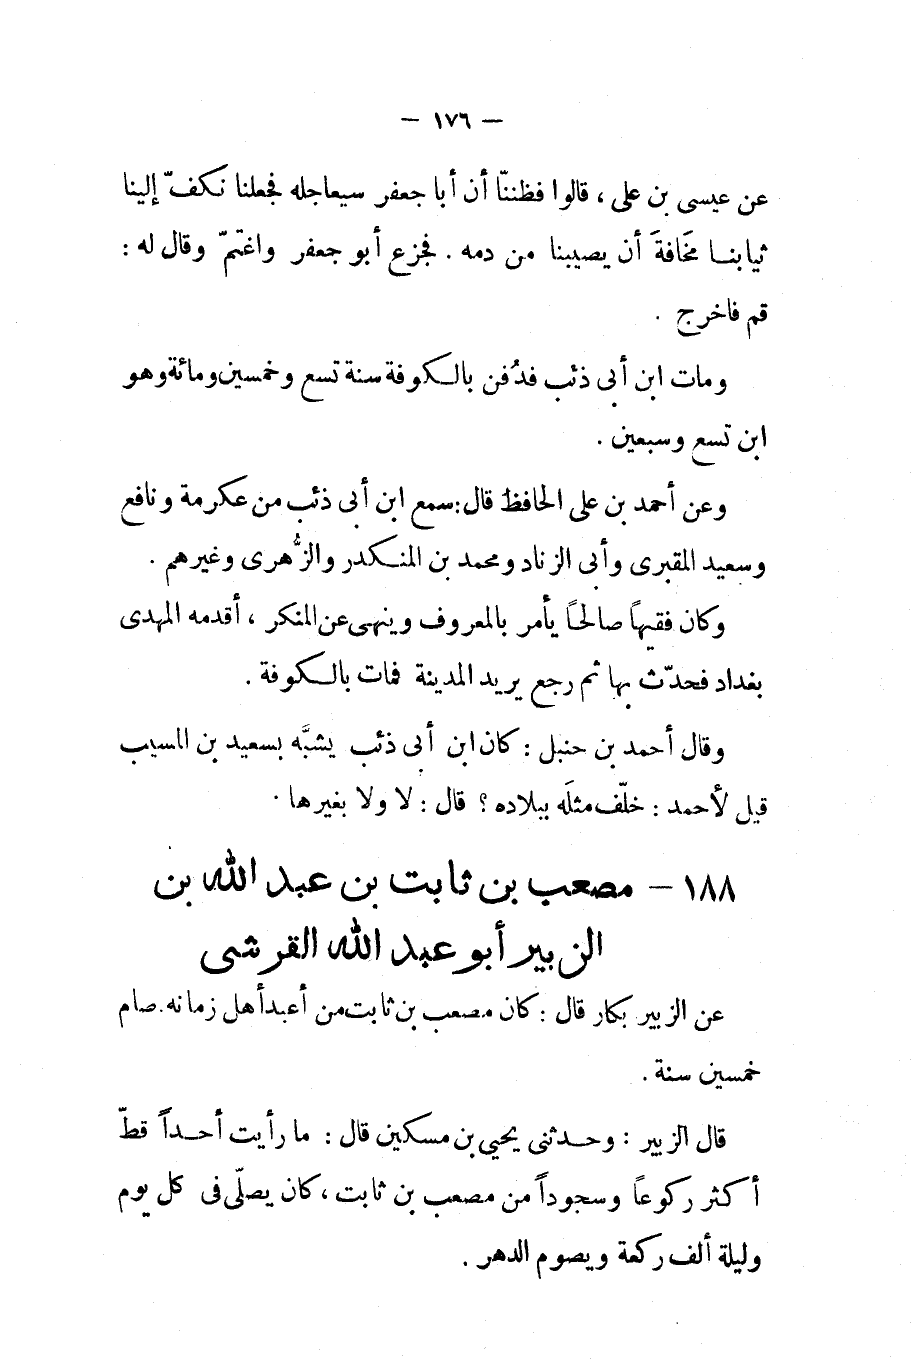 — ١٧٦ —
عن عيسى بن على ، قالوا فظننّا أن أبا جعفر سيعاجله فجعلنا نكفّ إلينا
ثيابنا مخَافةَ أن يصيبنا من دمه . فجزع أبو جعفر واغتمّ وقال له :
قم فاخرج .
ومات ابن أبى ذئب فدُفن بالكوفة سنة تسع وخمسين ومائة وهو
ابن تسع وسبعين .
وعن أحمد بن على الحافظ قال : سمع ابن أبى ذئب من عكرمة ونافع
وسعيد المقبرى وأبى الزناد ومحمد بن المنكدر والزُّهرى وغيرهم .
وكان فقيهاً صالحاً يأمر بالمعروف وينهى عن المنكر ، أقدمه المهدى
بغداد فحدّث بها ثم رجع يريد المدينة فمات بالكوفة .
وقال أحمد بن حنبل : كان ابن أبى ذئب يشبَّه بسعيد بن المسيب
قيل لأحمد : خلّف مثلَه ببلاده ؟ قال : لا ولا بغيرها .
١٨٨ — مصعب بن ثابت بن عبد الله بن
الزبير أبو عبد الله القرشى
عن الزبير بكار قال : كان مصعب بن ثابت من أعبد أهل زمانه . صام
خمسين سنة .
قال الزبير : وحدثنى يحيى بن مسكين قال : ما رأيت أحداً قطّ
أكثر ركوعاً وسجوداً من مصعب بن ثابت ، كان يصلّى فى كل يوم
وليلة ألف ركعة ويصوم الدهر .